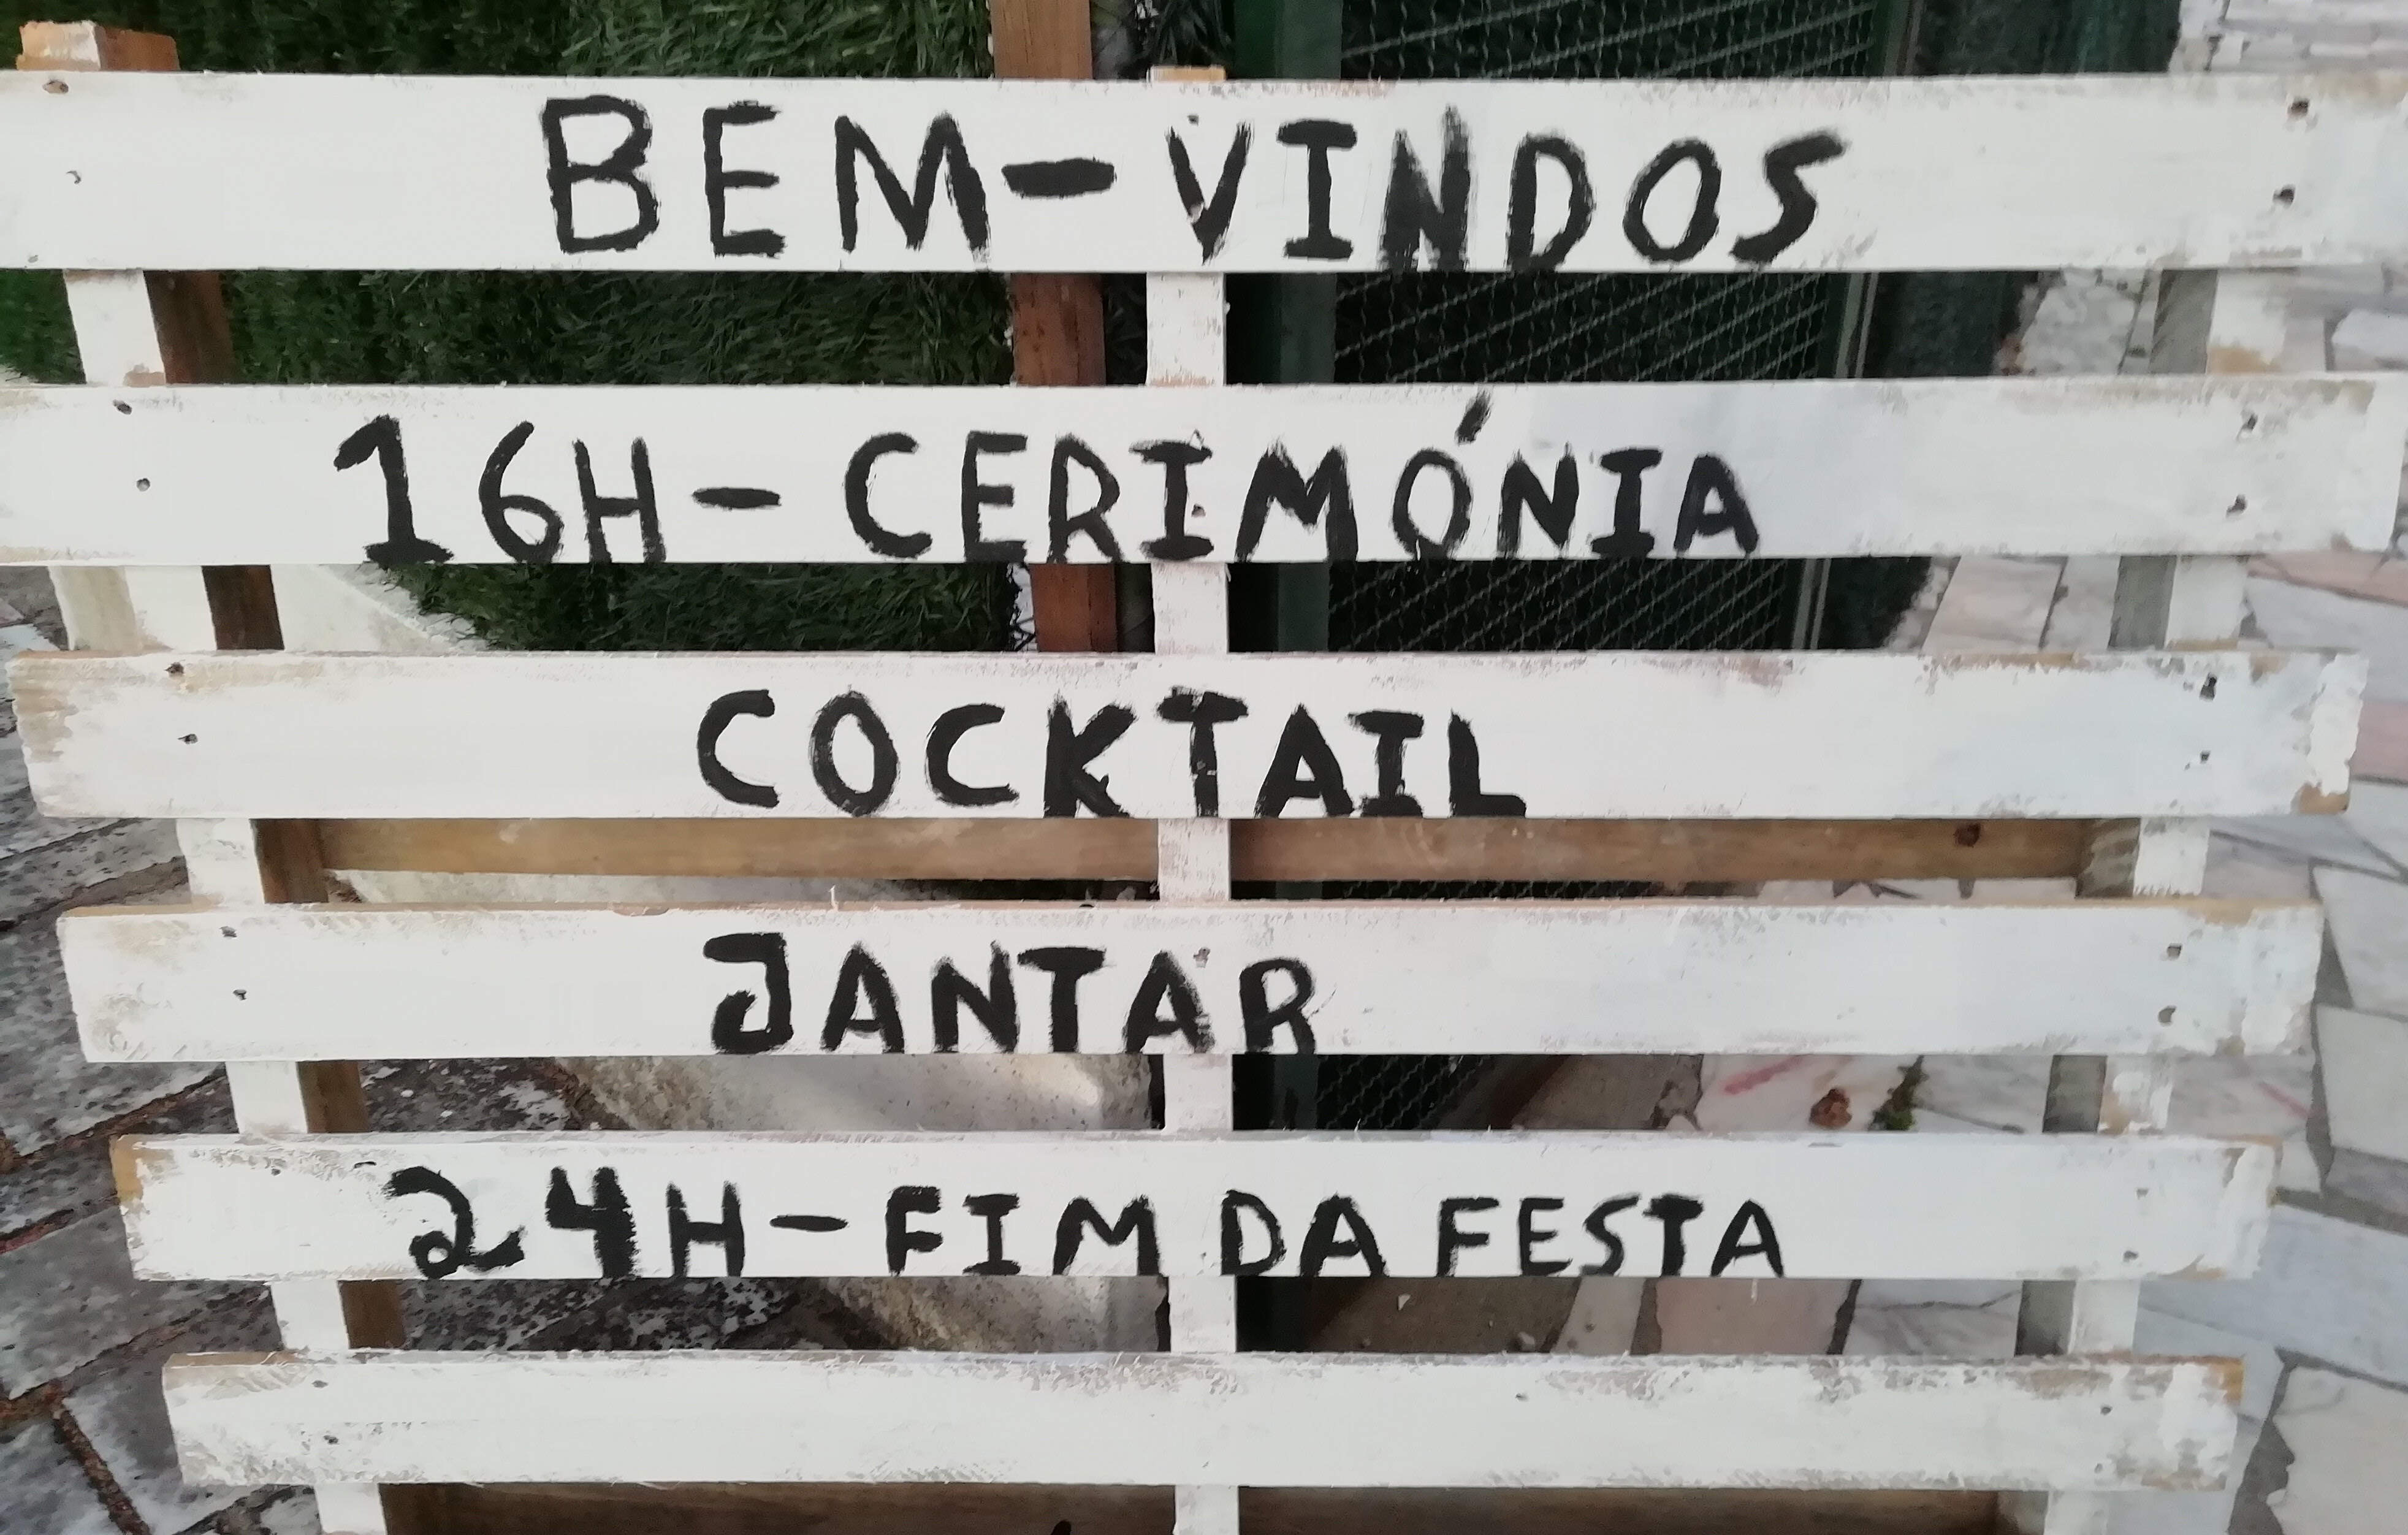 BEM-VINDOS
16H-CERIMÓNIA
COCKTAIL
JANTAR
24H-FIM DA FESTA